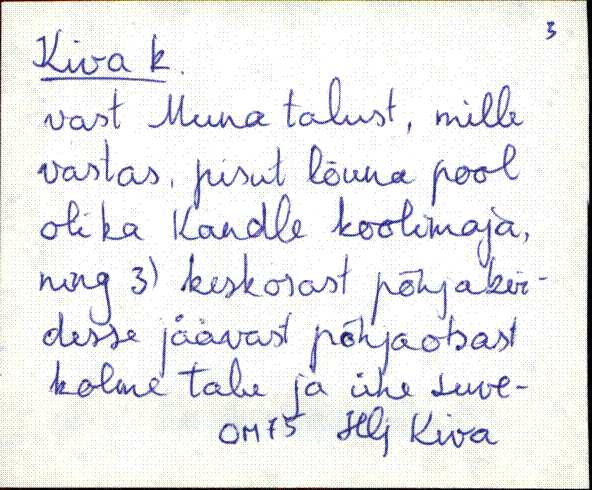 3
Kiva k.
vast Muna talust, mille
vastas, pisut lõuna pool
oli ka Kandle koolimaja,
ning 3) keskosast põhjakir-
desse jäävast põhjaotsast
kolme talu ja ühe suve-
OM75 Hlj Kiva